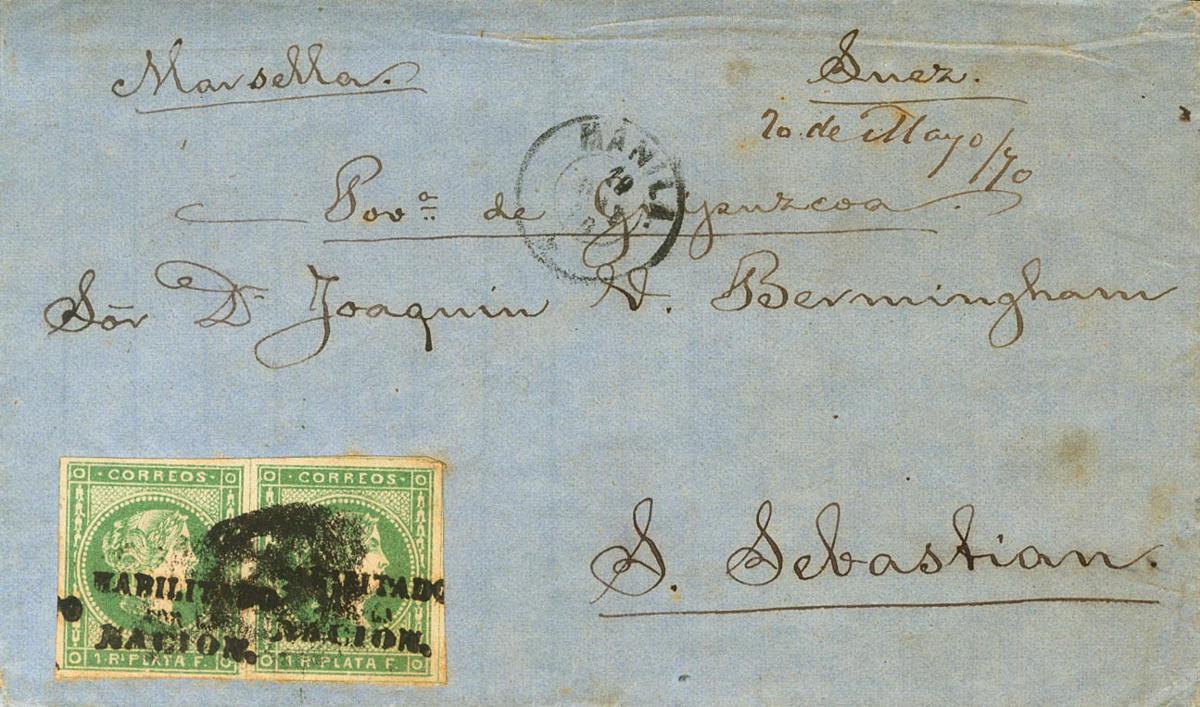 Marsella. Suez.
20 de Mayo/70
MANILA
Prov.ª de Guypuzcoa.
Sör Dn Joaquin V. Bermingham
S. Sebastian.
CORREOS CORREOS
HABILITADO HABILITADO
POR LA POR LA
NACION. NACION.
1 Rl PLATA F. 1 Rl PLATA F.